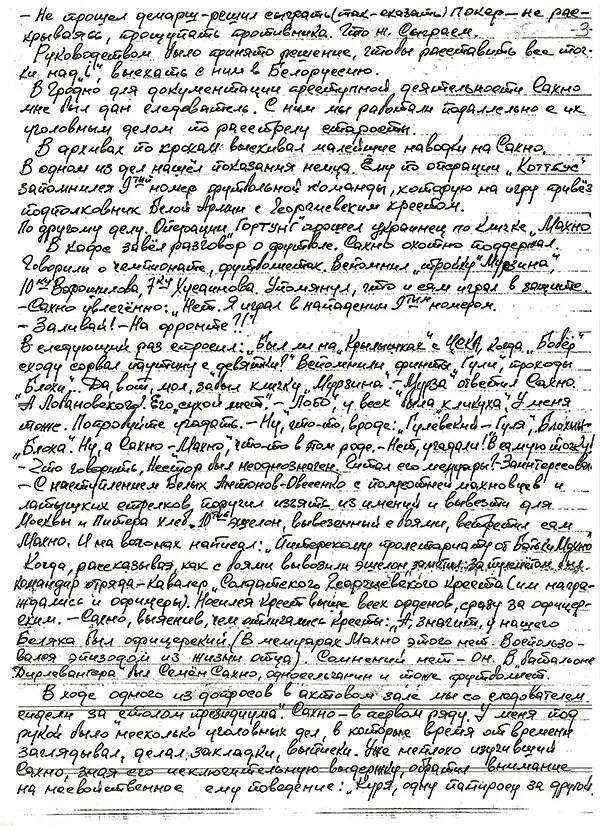 - Не прошел демарш-решил сыграть (так-сказать) Покер - не рас-
крываясь, прощупать противника. Что ж. Сыграем. -3-
Руководством было принято решение, чтобы расставить все точ-
ки над „i“ выехать с ним в Белоруссию.
В Гродно для документации преступной деятельности Сахно
мне был дан следователь. С ним мы работали параллельно с их
уголовным делом по расстрелу старосты.
В архивах по крохам выискивал малейшие наводки на Сахно.
В одном из дел нашёл показания немца. Ему по операции „Коттбус“
запомнился 9тый номер футбольной команды, которую на игру привёз
подполковник Белой Армии с Георгиевским крестом.
По другому делу. Операции „Гортунг“ прошел украинец по кличке „Махно“
В кафе завёл разговор о футболе. Сахно охотно поддержал.
Говорили о чемпионате, футболистах. Вспомнил „тройку“ „Мурзина“,
10ку Ворошилова, 7ку Хусаинова. Упомянул, что и сам играл в защите.
- Сахно увлечённо: „Нет. Я играл в нападении 9тым номером.
- Заливай! - На фронте?!?
В следующий раз спросил: „Был ли на „Крылышках“ с ЦСКА, когда „Бобёр“
сходу сорвал паутину с „девятки?“ Вспомнили финты „Гули“, проходы
„Блохи“... Да, вот, мол, забыл кличку „Мурзина“. - „Мурза“ ответил Сахно.
„А Лобановского? Его „сухой лист“ - „Лобо“, у всех была кликуха. У меня
тоже. Попробуйте угадать. - Ну, что-то, вроде: „Гулевский - Гуля“, Блохин-
„Блоха“. Ну, а Сахно - „Махно“, что-то в том роде. - Нет, угадали! В самую точку!
- Что говорить, Нестор был неоднозначен. Читал его мемуары?- Заинтересован
- С наступлением Белых Антонов-Овсеенко с полусотней махновцев и
латышских стрелков, поручил изъять из имений и вывезти для
Москвы и Питера хлеб. 10тый эшелон, вывезенный с боями, встретил сам
Махно. И на вагонах написал: „Питерскому пролетариату от Батьки Махно“
Когда, рассказывая, как с боями вывозили эшелон заметил: За три
командир отряда - кавалер „Солдатского Георгиевского Креста (им награ-
ждались и офицеры). Носился Крест выше всех орденов, сразу за офицер-
ским. - Сахно, выяснив, чем отличались кресты: „А, значит, у нашего
Беляка был офицерский (В мемуарах Махно этого нет. Воспользо-
вался эпизодом из жизни отца). Сомнений нет - Он. В батальоне
Дирлевангера был Семён Сахно, односельчанин и тоже футболист.
В ходе одного из допросов в актовом зале мы со следователем
сидели за „столом президиума“. Сахно - в первом ряду. У меня под
рукой было несколько уголовных дел, в которые время от времени
заглядывал, делал закладки, выписки. Уже неплохо изучивший
Сахно, зная его исключительную выдержку, обратил внимание
на несвойственное ему поведение: „Куря, одну папиросу за другой,